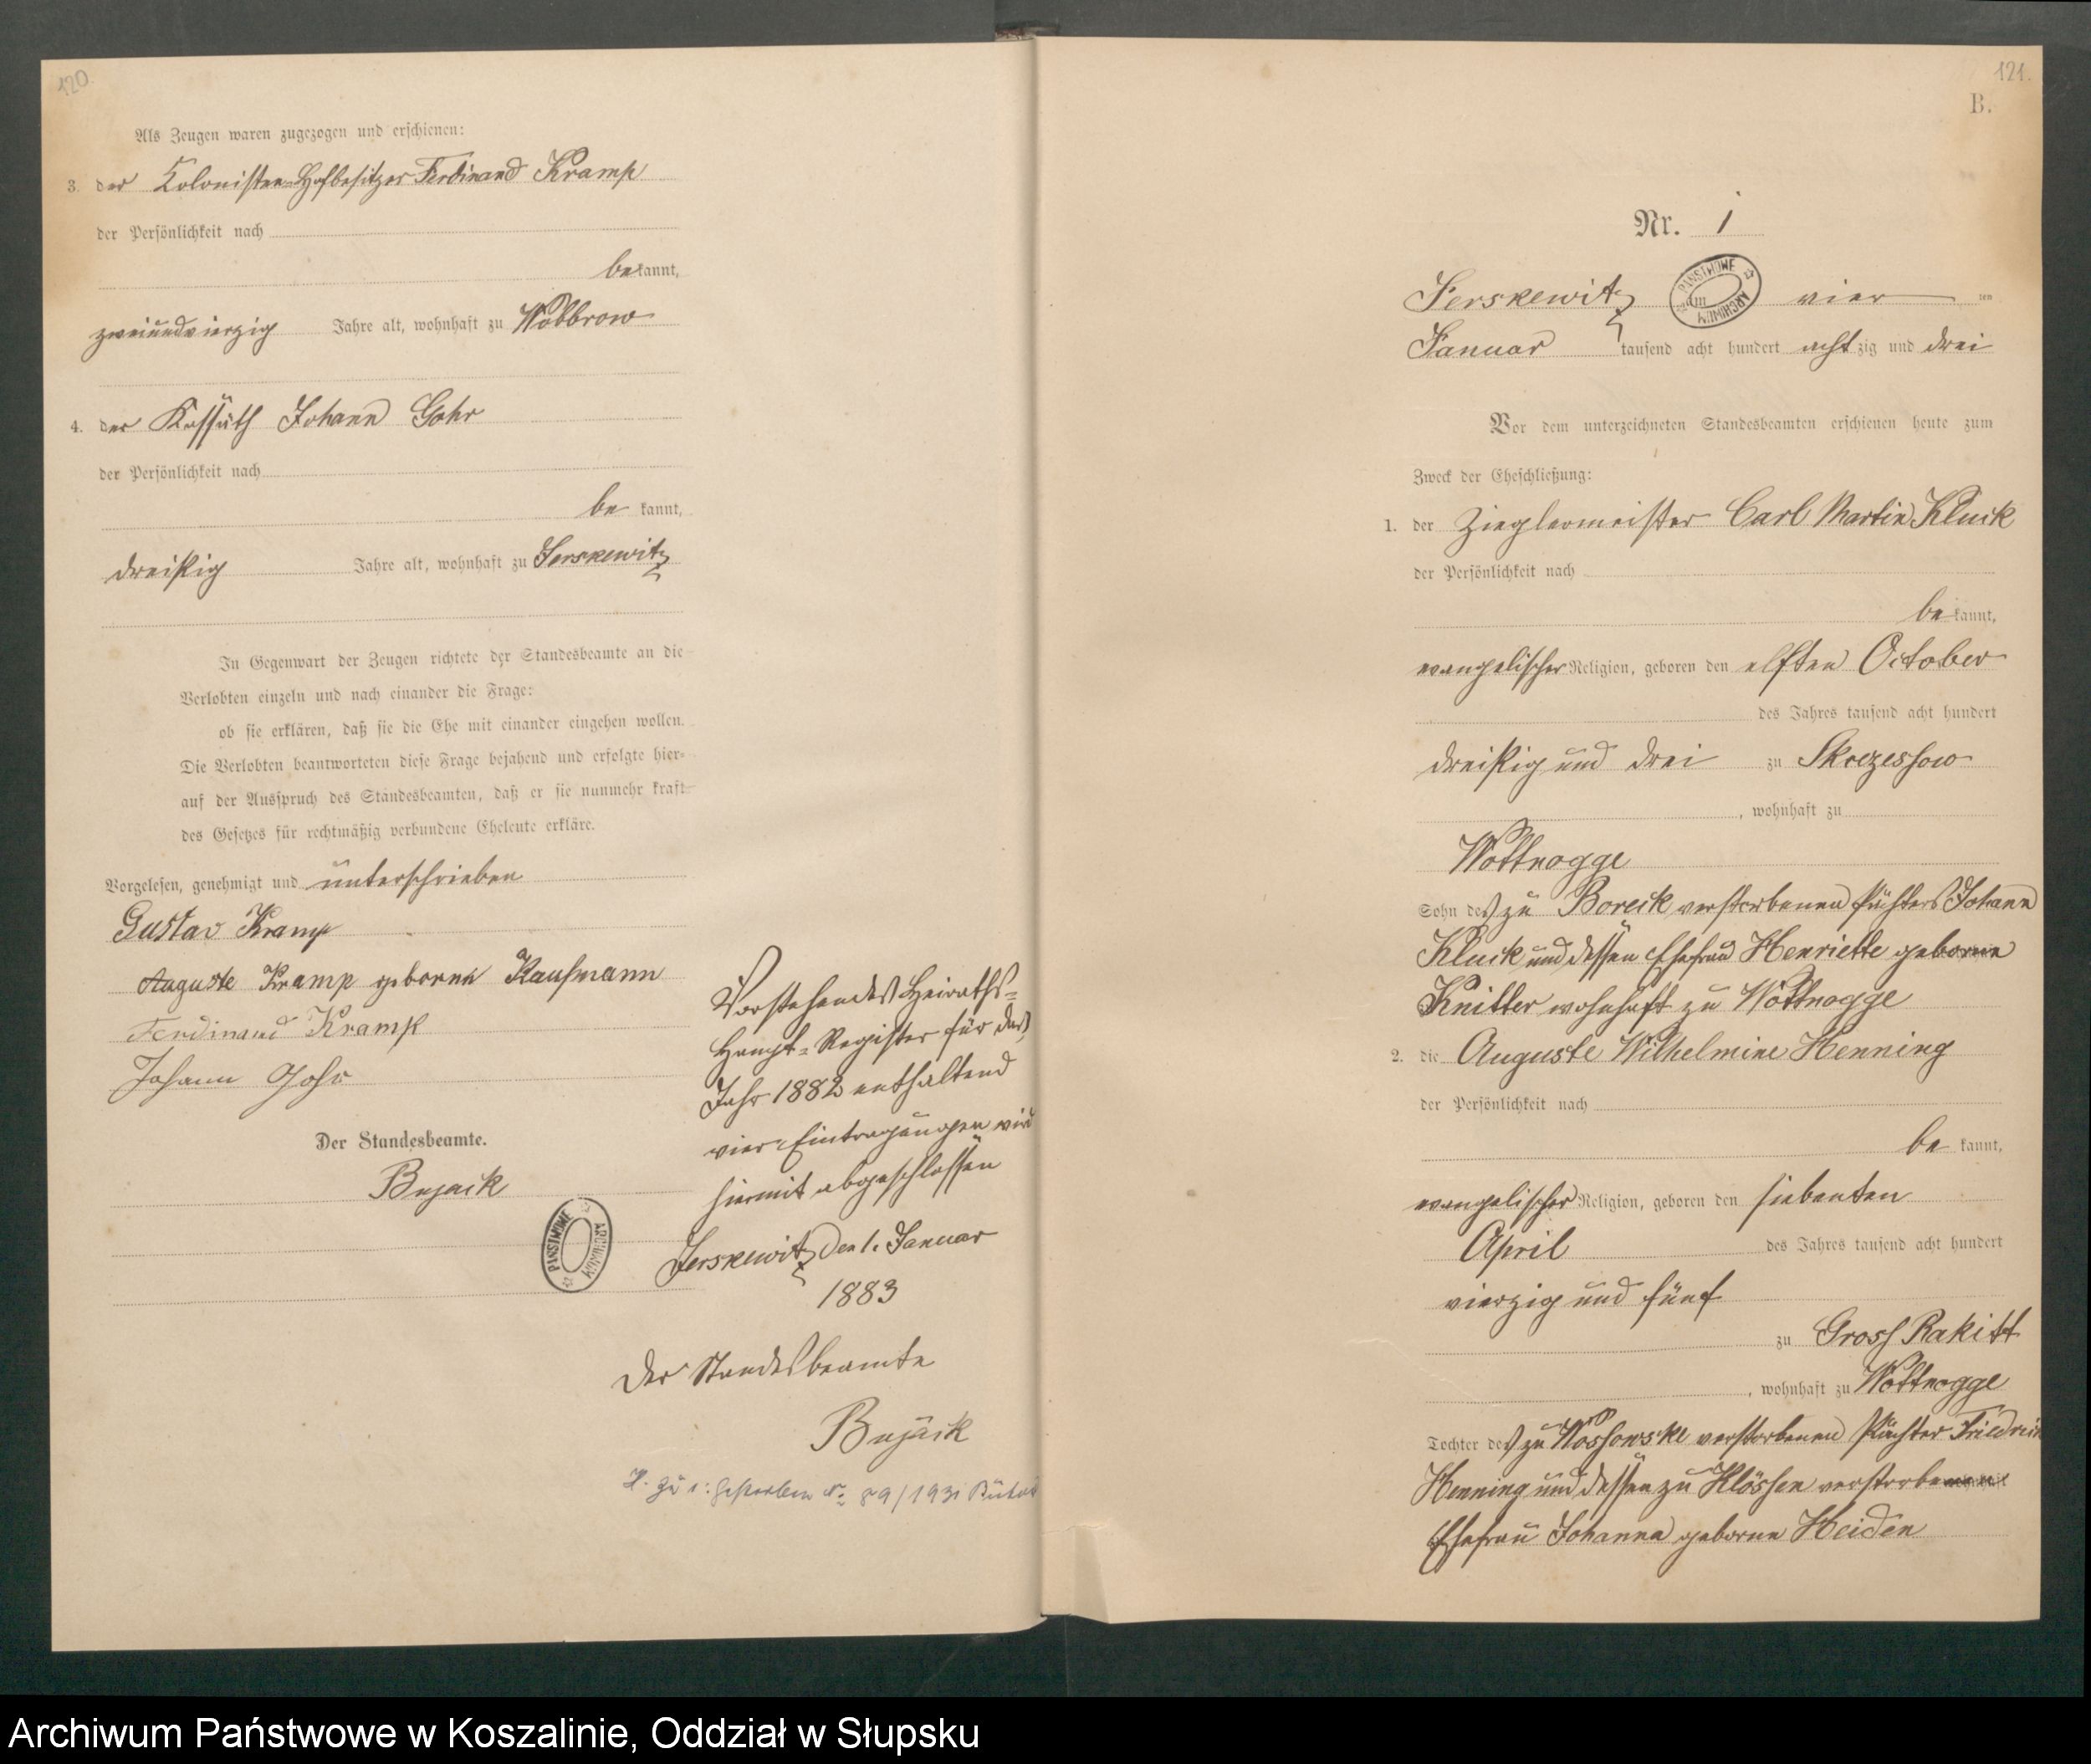 120.
Als Zeugen waren zugezogen und erschienen:
3. der Kolonisten-Hofbesitzer Ferdinand Kramp
der Persönlichkeit nach
bekannt,
zweiundvierzig Jahre alt, wohnhaft zu Wobbrow
4. der Kossäth Johann Gohr
der Persönlichkeit nach
be kannt,
dreißig Jahre alt, wohnhaft zu Jerskewitz
In Gegenwart der Zeugen richtete der Standesbeamte an die
Verlobten einzeln und nach einander die Frage:
ob sie erklären, daß sie die Ehe mit einander eingehen wollen.
Die Verlobten beantworteten diese Frage bejahend und erfolgte hier-
auf der Ausspruch des Standesbeamten, daß er sie nunmehr kraft
des Gesetzes für rechtmäßig verbundene Eheleute erkläre.
Vorgelesen, genehmigt und unterschrieben
Gustav Kramp
Auguste Kramp geborne Kaufmann
Ferdinand Kramp
Johann Gohr
Der Standesbeamte.
Bujack
PAŃSTWOWE ARCHIWUM
Vorstehendes Heiraths-
Haupt-Register für das
Jahr 1882 enthaltend
vier Eintragungen wird
hiermit abgeschlossen
Jerskewitz den 1. Januar
1883
Der Standesbeamte
Bujack
H. zu 1: gestorben No 59/1931 Bütow
121.
B.
Nr. 1
Jerskewitz am vier ten
PAŃSTWOWE ARCHIWUM
Januar tausend acht hundert achtzig und drei
Vor dem unterzeichneten Standesbeamten erschienen heute zum
Zweck der Eheschließung:
1. der Zieglermeister Carl Martin Kluck
der Persönlichkeit nach
bekannt,
evangelischer Religion, geboren den elften October
des Jahres tausend acht hundert
dreißig und drei zu Skrzeschow
, wohnhaft zu
Wottnogge
Sohn des zu Boreck verstorbenen Pächters Johann
Kluck und dessen Ehefrau Henriette geborne
Knitter wohnhaft zu Wottnogge
2. die Auguste Wilhelmine Henning
der Persönlichkeit nach
be kannt,
evangelischer Religion, geboren den siebenten
April des Jahres tausend acht hundert
vierzig und fünf
zu Gross Rakitt
, wohnhaft zu Wottnogge
Tochter des zu Wossowske verstorbenen Pächter Friedrich
Henning und dessen zu Klössen verstorbenen
Ehefrau Johanna geborne Heiden
Archiwum Państwowe w Koszalinie, Oddział w Słupsku